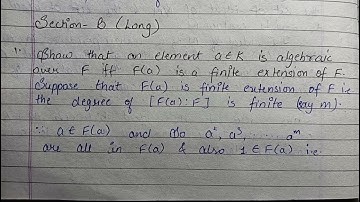 Section-B (Long)
1. Show that an element a∈K is algebraic
over F iff F(a) is a finite extension of F.
Suppose that F(a) is finite extension of F i.e
the degree of [F(a):F] is finite (say m).
∵ a∈F(a) and so a², a³, ........ aᵐ
are all in F(a) & also 1∈F(a) i.e.